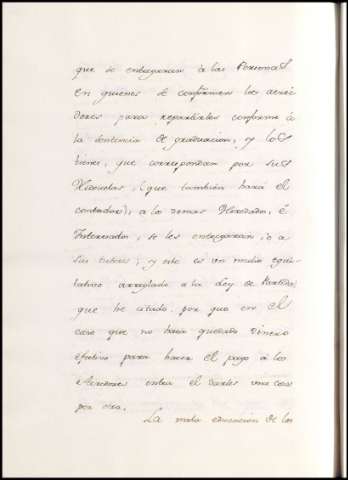 que se entregaran à las Personas
en quienes se conformen los acree
dores para repartirles conforme à
la sentencia de graduacion, y los
bienes, que correspondan por sus
Hijuelas, (que tambien hará el
contador), a los demas Herederos, é
Interesados, se les entregaran, ò a
sus tutores; y este es un medio equi
tativo arreglado a la Ley de Partida
que he citado, por que en el
caso que no haia quedado dinero
efectivo para hacer el pago à los
Acreedores entra el darles una cosa
por otra.
La mala educacion de los